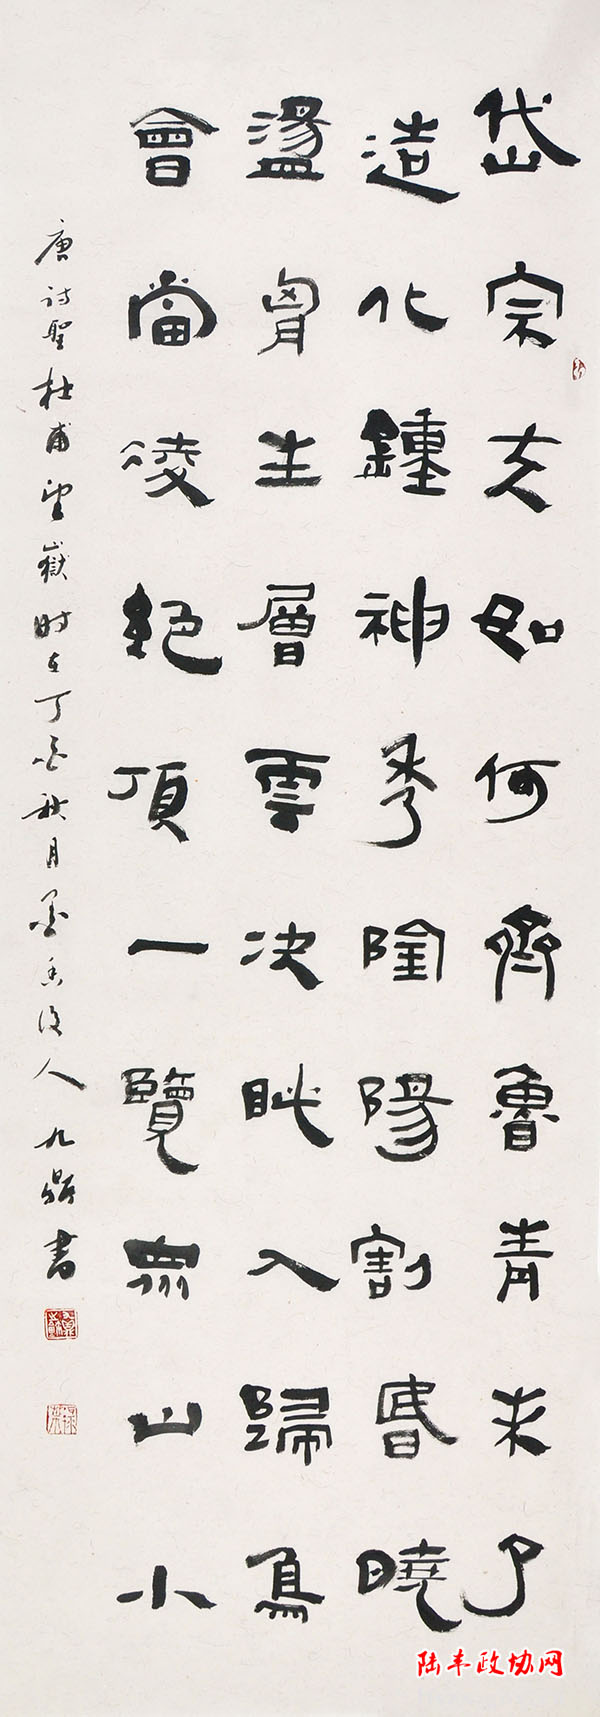 岱宗夫如何齊魯青未了
造化鍾神秀陰陽割昏曉
盪胷生層雲決眦入歸鳥
會當凌絕頂一覽眾山小
唐詩聖杜甫望嶽時在丁酉秋月墨香後人九鼎書
陆丰政协网